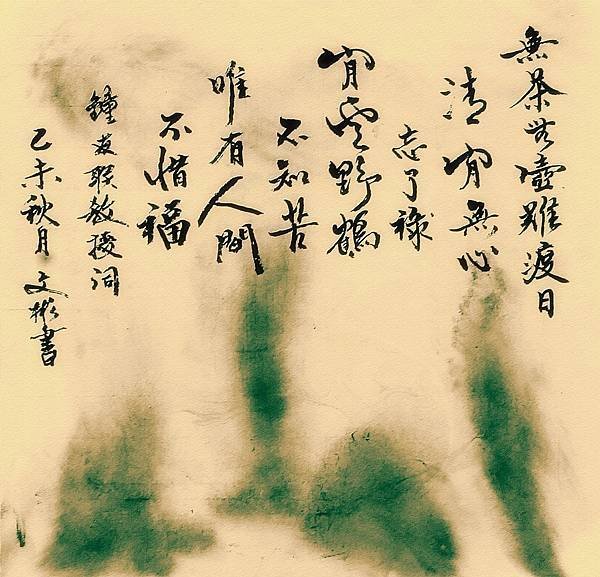 無茶無壺難渡日
清閒無心
忘了祿
閒雲野鶴
不知苦
唯有人間
不惜福
鐘友聯教授詞
乙未秋月文彬書